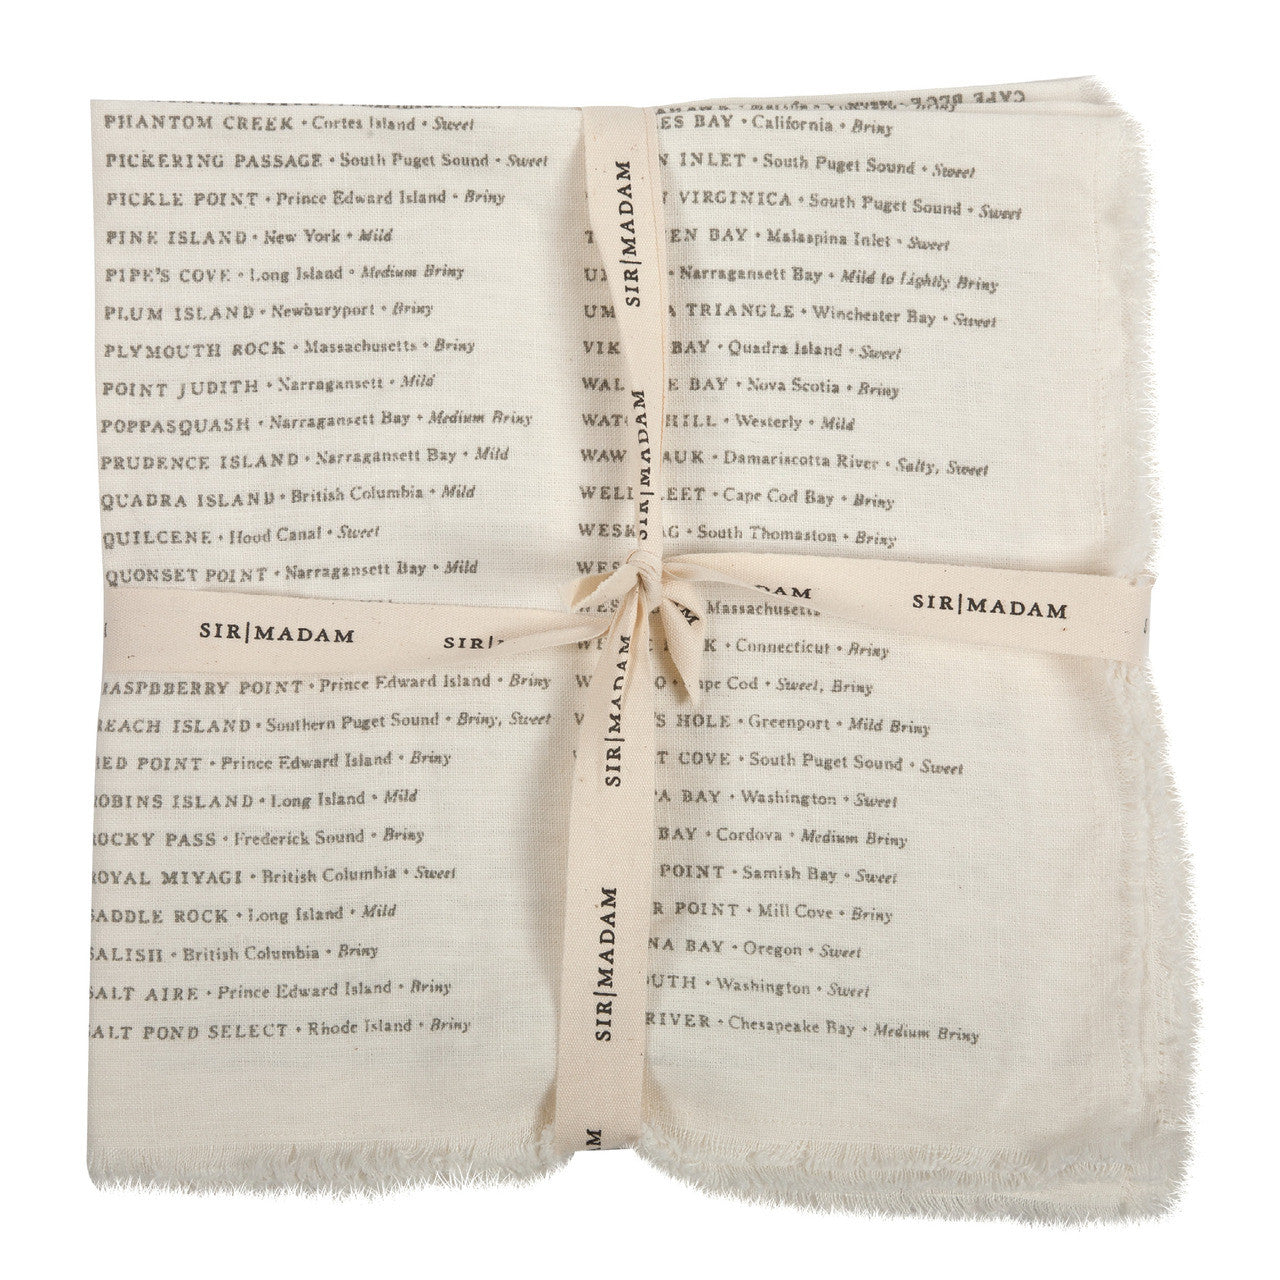 PHANTOM CREEK • Cortes Island • Sweet
PICKERING PASSAGE • South Puget Sound • Sweet
PICKLE POINT • Prince Edward Island • Briny
PINE ISLAND • New York • Mild
PIPE'S COVE • Long Island • Medium Briny
PLUM ISLAND • Newburyport • Briny
PLYMOUTH ROCK • Massachusetts • Briny
POINT JUDITH • Narragansett • Mild
POPPASQUASH • Narragansett Bay • Medium Briny
PRUDENCE ISLAND • Narragansett Bay • Mild
QUADRA ISLAND • British Columbia • Mild
QUILCENE • Hood Canal • Sweet
QUONSET POINT • Narragansett Bay • Mild
RASPBBERRY POINT • Prince Edward Island • Briny
REACH ISLAND • Southern Puget Sound • Briny, Sweet
RED POINT • Prince Edward Island • Briny
ROBINS ISLAND • Long Island • Mild
ROCKY PASS • Frederick Sound • Briny
ROYAL MIYAGI • British Columbia • Sweet
SADDLE ROCK • Long Island • Mild
SALISH • British Columbia • Briny
SALT AIRE • Prince Edward Island • Briny
SALT POND SELECT • Rhode Island • Briny
CAPE BLUE
ES BAY • California • Briny
N INLET • South Puget Sound • Sweet
VIRGINICA • South Puget Sound • Sweet
EN BAY • Malaspina Inlet • Sweet
• Narragansett Bay • Mild to Lightly Briny
UM A TRIANGLE • Winchester Bay • Sweet
VIK BAY • Quadra Island • Sweet
WAL E BAY • Nova Scotia • Briny
WAT HILL • Westerly • Mild
WAW AUK • Damariscotta River • Salty, Sweet
WELL EET • Cape Cod Bay • Briny
WESK AG • South Thomaston • Briny
WES
Massachusetts
K • Connecticut • Briny
O • Cape Cod • Sweet, Briny
'S HOLE • Greenport • Mild Briny
T COVE • South Puget Sound • Sweet
PA BAY • Washington • Sweet
BAY • Cordova • Medium Briny
POINT • Samish Bay • Sweet
R POINT • Mill Cove • Briny
NA BAY • Oregon • Sweet
OUTH • Washington • Sweet
RIVER • Chesapeake Bay • Medium Briny
SIR|MADAM
SIR|MADAM
SIR|MADAM
SIR|
DAM
SIR|MADAM
SIR|MADAM
SIR|MADAM